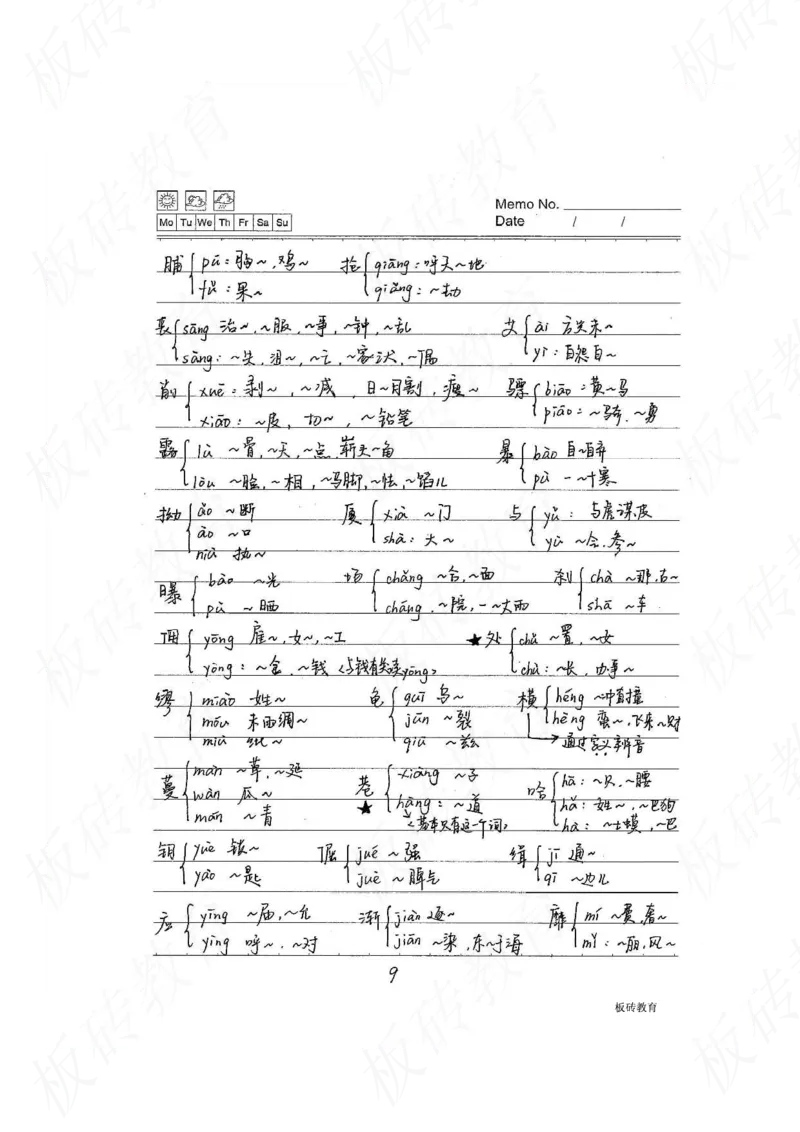 Memo No.
Mo Tu We Th Fr Sa Su
Date / /
脯 pú：胸~，鸡~ 抢 qiāng：呼天~地
fǔ：果~ qiǎng：~劫
丧 sāng 治~，~服，~事，~钟，~乱 艾 ài 方兴未~
sàng：~失，沮~，~亡，~家之犬，~偶 yì：自怨自~
削 xuē：剥~，~减，日~月割，瘦~ 骠 biāo：黄~马
xiāo：~皮，切~，~铅笔 piào：~骑，~勇
露 lù ~骨，~天，~点，崭~头角 暴 bào 自~自弃
lòu ~脸，~相，~马脚，~怯，~馅儿 pù 一~十寒
拗 ǎo ~断 厦 xià ~门 与 yǔ：与虎谋皮
ào ~口 shà：大~ yù ~会，参~
niù 执~
曝 bào ~光 场 chǎng ~合，~面 刹 chà ~那，古~
pù ~晒 cháng ~院，一~大雨 shā ~车
佣 yōng 雇~，女~，~工 ★处 chǔ ~置，~女
yòng：~金，~钱〈与钱有关读yòng〉 chù：~长，办事~
缪 miào 姓~ 龟 guī 乌~ 横 héng ~冲直撞
móu 未雨绸~ jūn ~裂 hèng 蛮~，飞来~财
miù 纰~ qiū ~兹 通过字义辨音
蔓 màn ~草，~延 巷 xiàng ~子 哈 hā：~欠，~腰
wàn 瓜~ ★ hàng：~道 hǎ：姓~，~巴狗
mán ~青 〈基本只有这一个词〉 hà：~士蟆，~巴
钥 yuè 锁~ 倔 jué ~强 缉 jī 通~
yào ~匙 juè ~脾气 qī ~边儿
应 yīng ~届，~允 渐 jiàn 逐~ 靡 mí ~费，奢~
yìng 呼~，~对 jiān ~染，东~于海 mǐ：~丽，风~
9
板砖教育